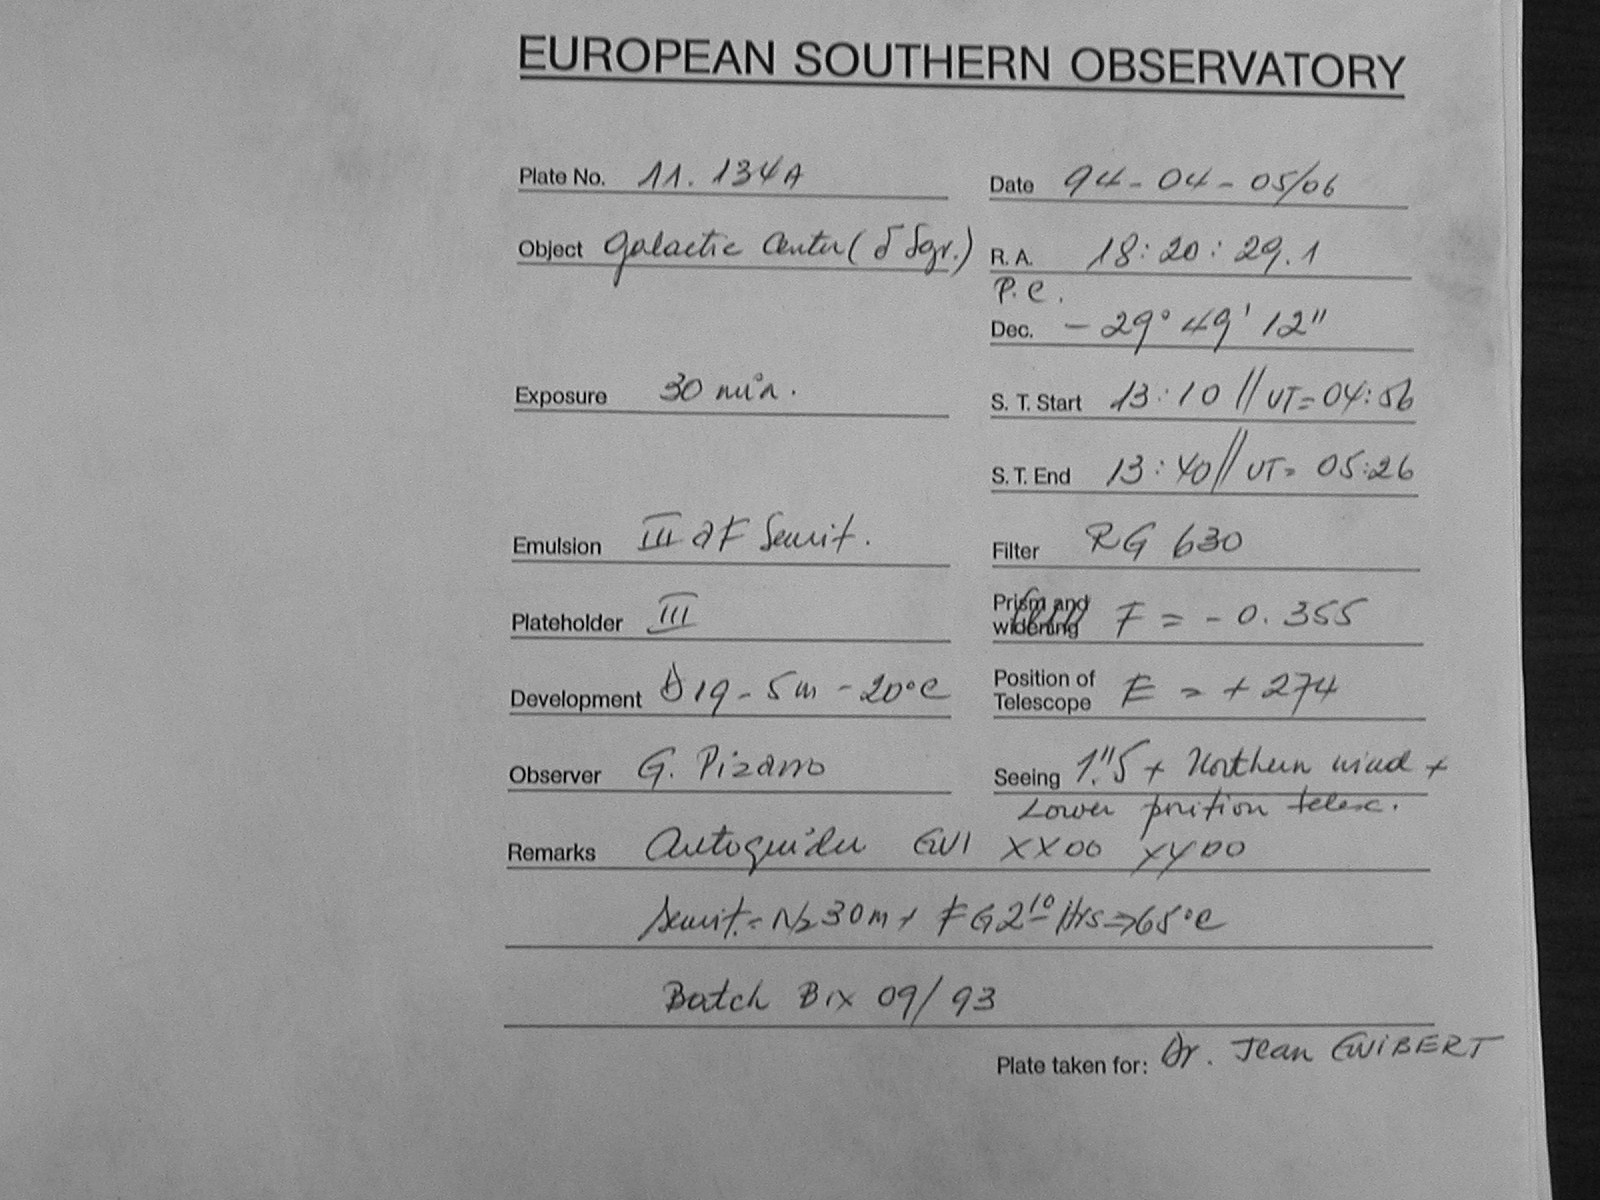 EUROPEAN SOUTHERN OBSERVATORY
Plate No. 11. 134A Date 94-04-05/06
Object Galactic Center (δ Sgr.) R. A. 18:20:29.1
P.C.
Dec. -29° 49' 12"
Exposure 30 min. S. T. Start 13:10 // UT=04:56
S. T. End 13:40 // UT= 05:26
Emulsion III aF Sensit. Filter RG 630
Plateholder III Prism and widening F = -0.355
Development D19-5m-20°C Position of Telescope E = +274
Observer G. Pizarro Seeing 1."5 + Northern wind +
Lower position telesc.
Remarks Autoguider GUI XX00 XY00
Sensit.= N2 30m + FG 2 10 Hrs ⇒ 65°C
Batch Bix 09/93
Plate taken for: Dr. Jean GUIBERT